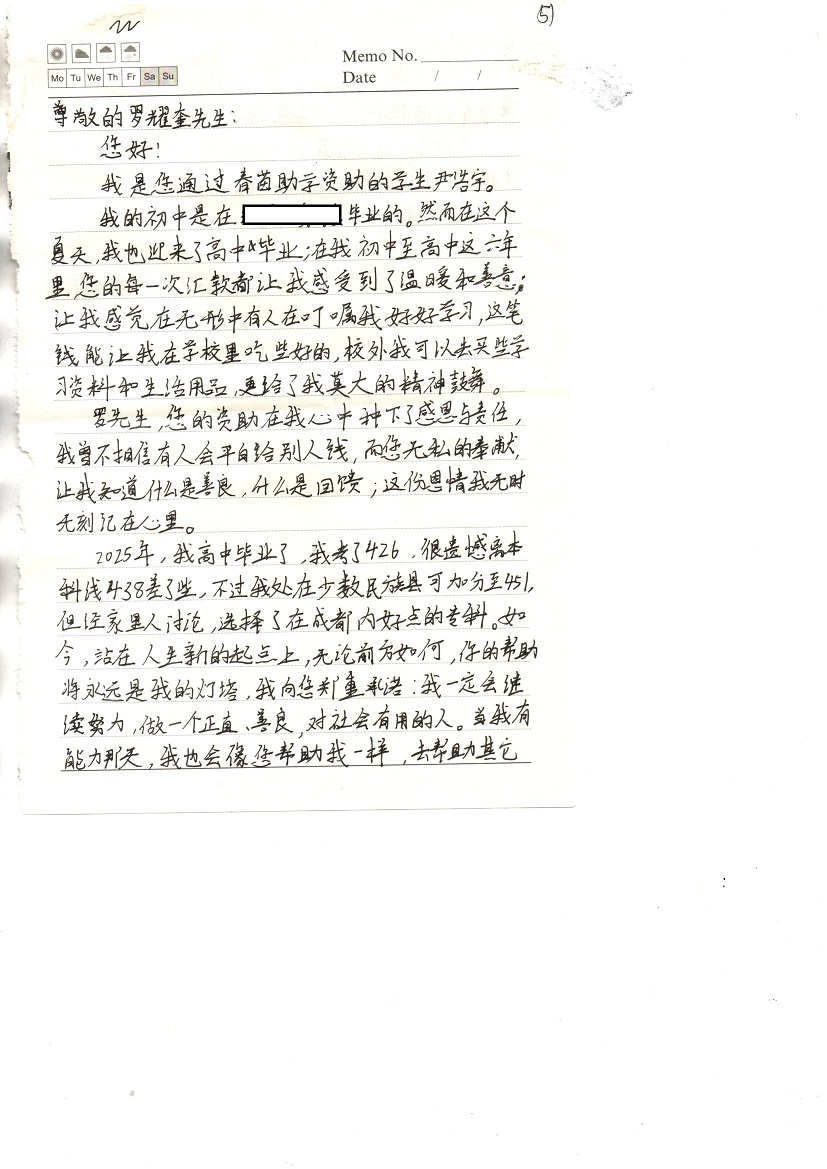 5)
Memo No.
Mo Tu We Th Fr Sa Su
Date / /
尊敬的罗耀奎先生：
您好！
我是您通过春茵助学资助的学生尹浩宇。
我的初中是在 毕业的。然而在这个
夏天，我也迎来了高中毕业；在我初中至高中这六年
里，您的每一次汇款都让我感受到了温暖和善意；
让我感觉在无形中有人在叮嘱我好好学习，这笔
钱能让我在学校里吃些好的，校外我可以去买些学
习资料和生活用品，更给了我莫大的精神鼓舞。
罗先生，您的资助在我心中种下了感恩与责任，
我曾不相信有人会平白给别人钱，而您无私的奉献，
让我知道什么是善良，什么是回馈；这份恩情我无时
无刻记在心里。
2025年，我高中毕业了，我考了426，很遗憾离本
科线438差了些，不过我处在少数民族县可加分至451，
但经家里人讨论，选择了在成都内好点的专科。如
今，站在人生新的起点上，无论前方如何，你的帮助
将永远是我的灯塔，我向您郑重承诺：我一定会继
续努力，做一个正直、善良，对社会有用的人。当我有
能力那天，我也会像您帮助我一样，去帮助其它